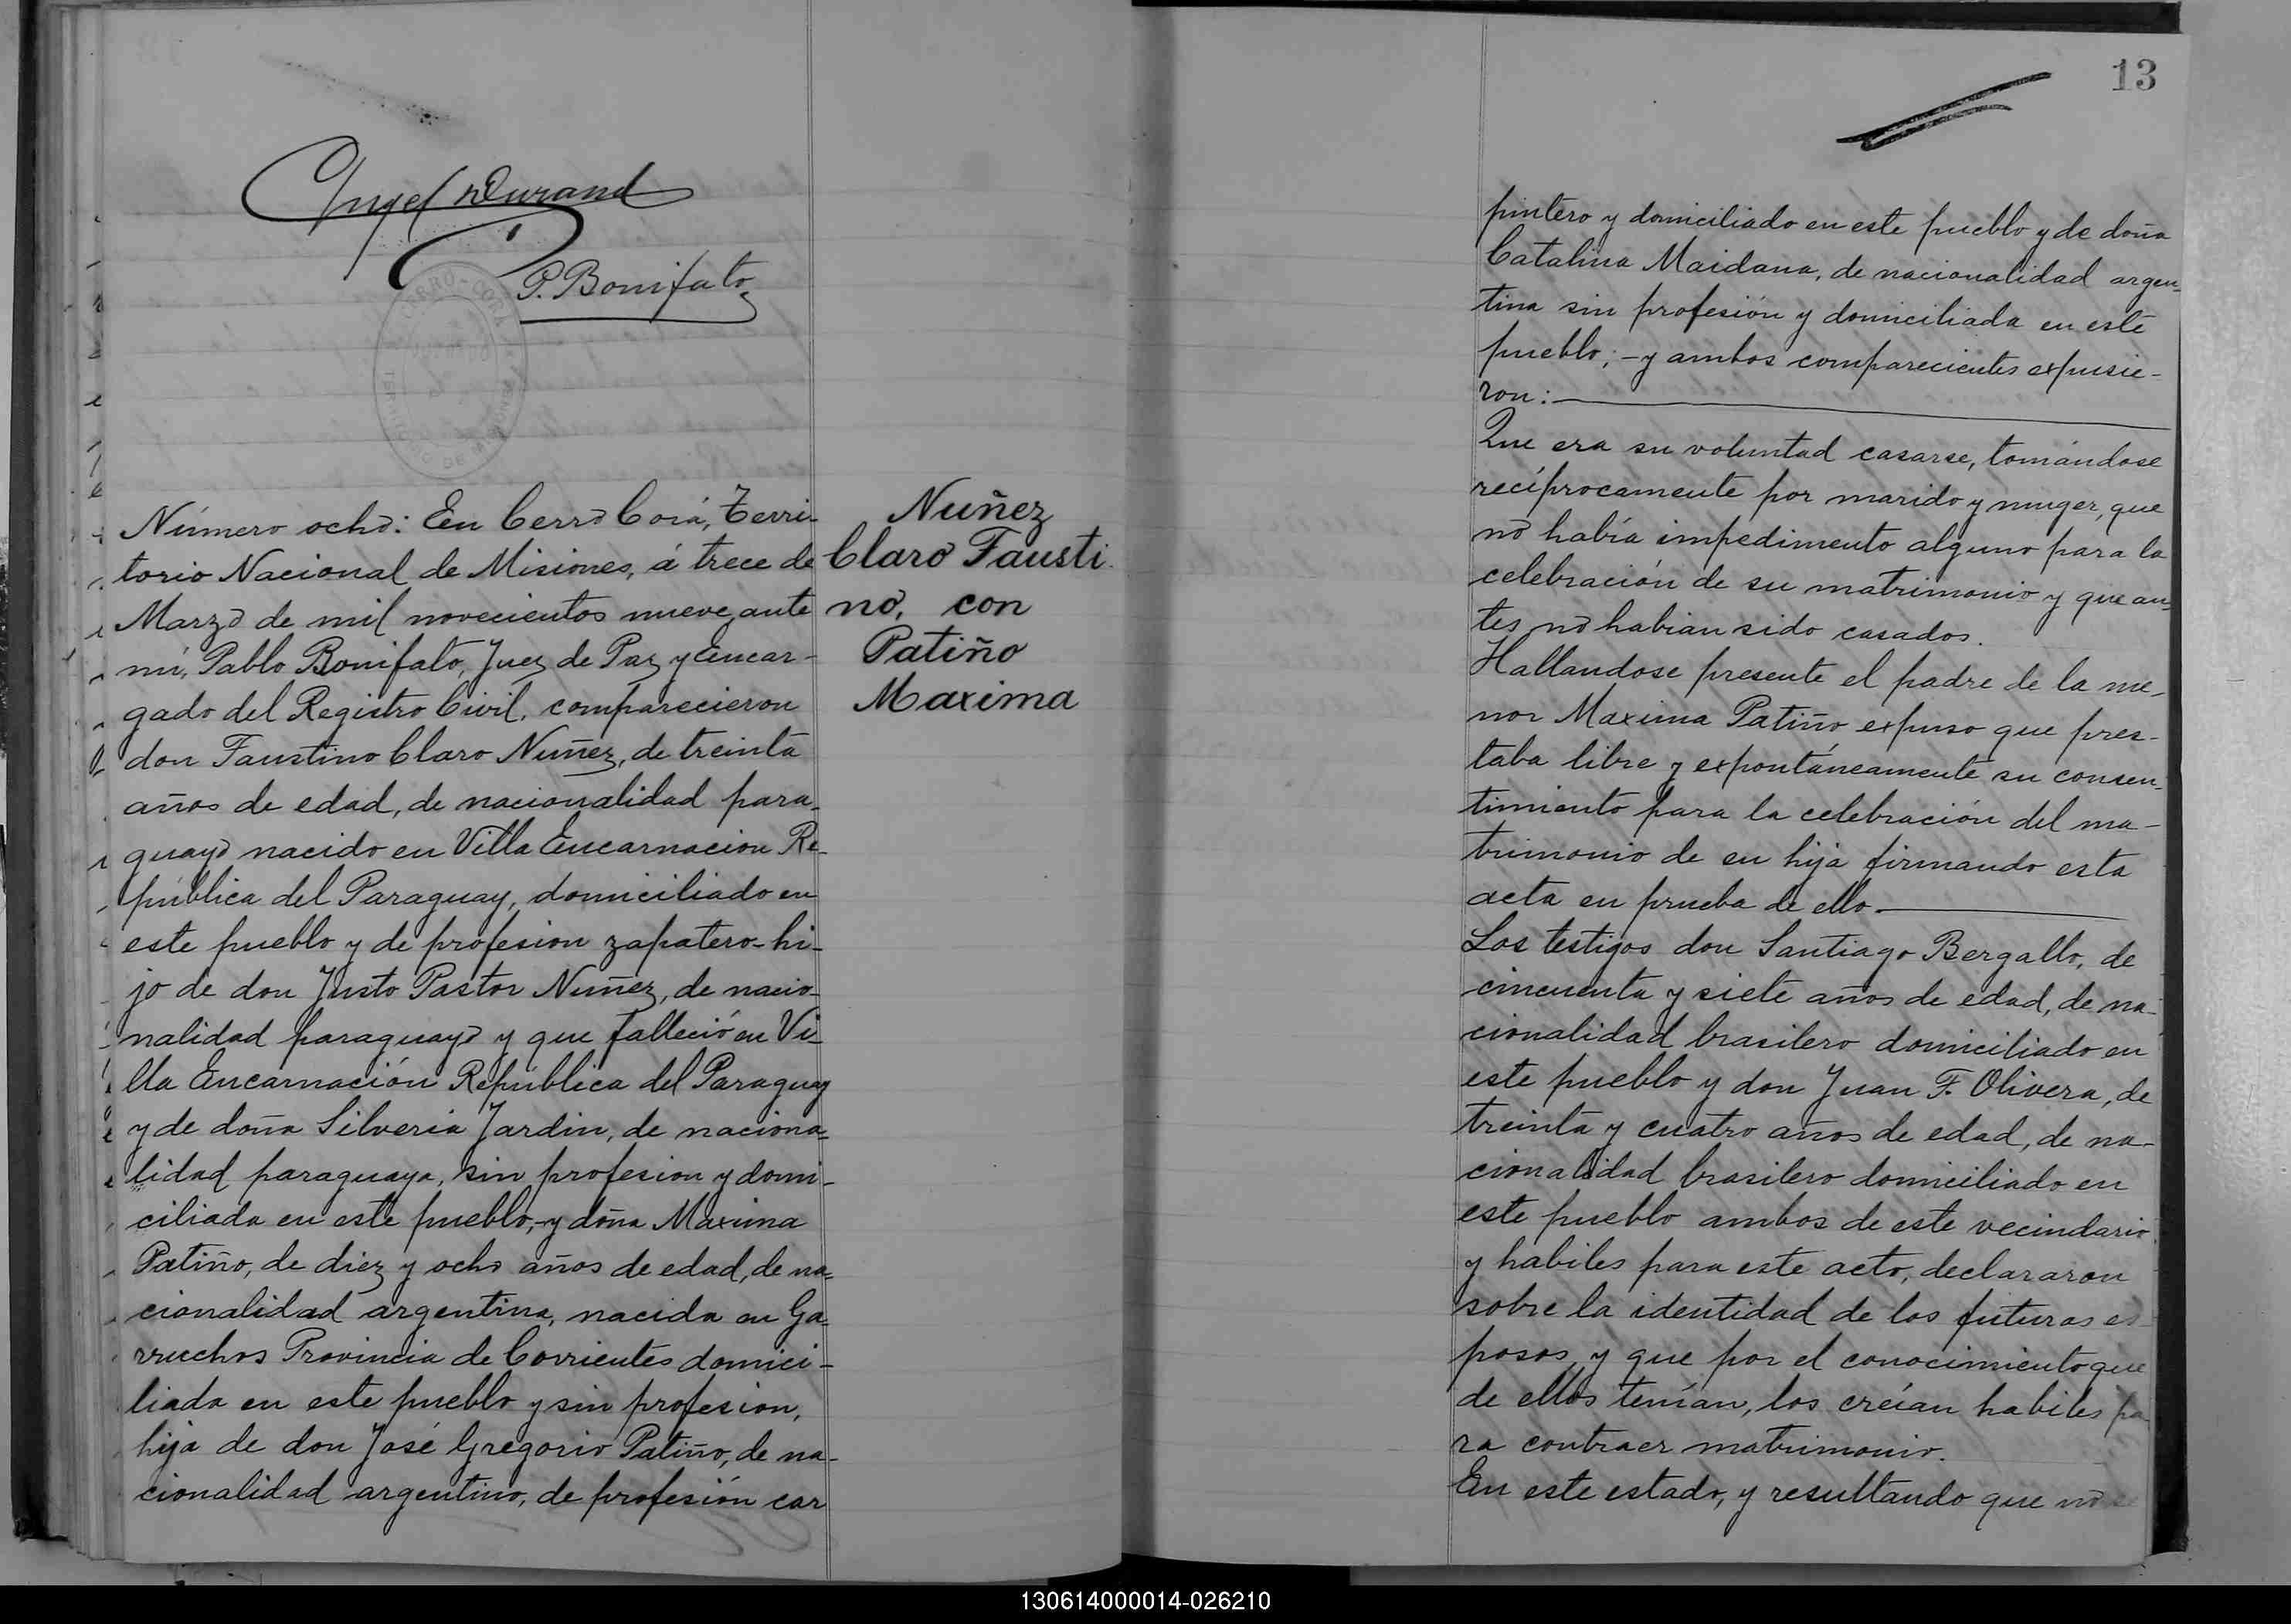 Angel Durand
P. Bonifato
CERRO-CORÁ
DE MISIONES
Número ocho: En Cerro Corá, Terri-
torio Nacional de Misiones, á trece de
Marzo de mil novecientos nueve, ante
mí, Pablo Bonifato, Juez de Paz y Encar-
gado del Registro Civil, comparecieron
don Faustino Claro Nuñez, de treinta
años de edad, de nacionalidad para-
guayo nacido en Villa Encarnacion Re-
pública del Paraguay, domiciliado en
este pueblo y de profesion zapatero-hi-
jo de don Justo Pastor Nuñez, de nacio-
nalidad paraguayo y que falleció en Vi-
lla Encarnación República del Paraguay
y de doña Silveria Jardin, de naciona-
lidad paraguaya, sin profesion y domi-
ciliada en este pueblo,-y doña Maxima
Patiño, de diez y ocho años de edad, de na-
cionalidad argentina, nacida en Ga-
rruchos Provincia de Corrientes domici-
liada en este pueblo y sin profesion,
hija de don José Gregorio Patiño, de na-
cionalidad argentino, de profesión car
Nuñez
Claro Fausti-
no, con
Patiño
Maxima
13
pintero y domiciliado en este pueblo y de doña
Catalina Maidana, de nacionalidad argen-
tina sin profesión y domiciliada en este
pueblo;-y ambos comparecientes expusie-
ron:
Que era su voluntad casarse, tomándose
recíprocamente por marido y muger, que
no había impedimento alguno para la
celebración de su matrimonio y que an-
tes no habian sido casados.
Hallandose presente el padre de la me-
nor Maxima Patiño expuso que pres-
taba libre y expontáneamente su consen-
timiento para la celebración del ma-
trimonio de su hija firmando esta
acta en prueba de ello.
Los testigos don Santiago Bergallo, de
cincuenta y siete años de edad, de na-
cionalidad brasilero domiciliado en
este pueblo y don Juan F. Olivera, de
treinta y cuatro años de edad, de na-
cionalidad brasilero domiciliado en
este pueblo ambos de este vecindario
y habiles para este acto, declararon
sobre la identidad de los futuros es
posos, y que por el conocimiento que
de ellos tenían, los creían habiles pa
ra contraer matrimonio.
En este estado, y resultando que no se
130614000014-026210